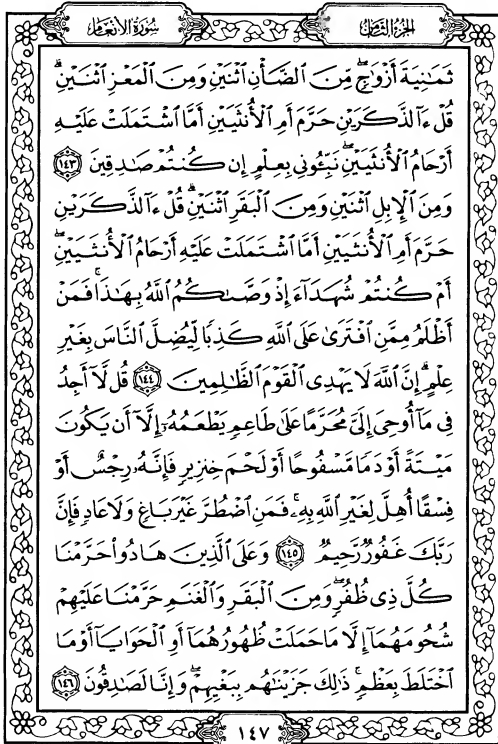 سُورَةُ الأَنعَام
الجُزءُ الثَّامِن
ثَمَٰنِيَةَ أَزْوَٰجٍ ۖ مِّنَ ٱلضَّأْنِ ٱثْنَيْنِ وَمِنَ ٱلْمَعْزِ ٱثْنَيْنِ ۗ
قُلْ ءَآلذَّكَرَيْنِ حَرَّمَ أَمِ ٱلْأُنثَيَيْنِ أَمَّا ٱشْتَمَلَتْ عَلَيْهِ
أَرْحَامُ ٱلْأُنثَيَيْنِ ۖ نَبِّـُٔونِى بِعِلْمٍ إِن كُنتُمْ صَٰدِقِينَ ١٤٣
وَمِنَ ٱلْإِبِلِ ٱثْنَيْنِ وَمِنَ ٱلْبَقَرِ ٱثْنَيْنِ ۗ قُلْ ءَآلذَّكَرَيْنِ
حَرَّمَ أَمِ ٱلْأُنثَيَيْنِ أَمَّا ٱشْتَمَلَتْ عَلَيْهِ أَرْحَامُ ٱلْأُنثَيَيْنِ ۖ
أَمْ كُنتُمْ شُهَدَآءَ إِذْ وَصَّىٰكُمُ ٱللَّهُ بِهَٰذَا ۚ فَمَنْ
أَظْلَمُ مِمَّنِ ٱفْتَرَىٰ عَلَى ٱللَّهِ كَذِبًا لِّيُضِلَّ ٱلنَّاسَ بِغَيْرِ
عِلْمٍ ۗ إِنَّ ٱللَّهَ لَا يَهْدِى ٱلْقَوْمَ ٱلظَّٰلِمِينَ ١٤٤ قُل لَّآ أَجِدُ
فِى مَآ أُوحِىَ إِلَىَّ مُحَرَّمًا عَلَىٰ طَاعِمٍ يَطْعَمُهُۥٓ إِلَّآ أَن يَكُونَ
مَيْتَةً أَوْ دَمًا مَّسْفُوحًا أَوْ لَحْمَ خِنزِيرٍ فَإِنَّهُۥ رِجْسٌ أَوْ
فِسْقًا أُهِلَّ لِغَيْرِ ٱللَّهِ بِهِۦ ۚ فَمَنِ ٱضْطُرَّ غَيْرَ بَاغٍ وَلَا عَادٍ فَإِنَّ
رَبَّكَ غَفُورٌ رَّحِيمٌ ١٤٥ وَعَلَى ٱلَّذِينَ هَادُوا۟ حَرَّمْنَا
كُلَّ ذِى ظُفُرٍ ۖ وَمِنَ ٱلْبَقَرِ وَٱلْغَنَمِ حَرَّمْنَا عَلَيْهِمْ
شُحُومَهُمَآ إِلَّا مَا حَمَلَتْ ظُهُورُهُمَآ أَوِ ٱلْحَوَايَآ أَوْ مَا
ٱخْتَلَطَ بِعَظْمٍ ۚ ذَٰلِكَ جَزَيْنَٰهُم بِبَغْيِهِمْ ۖ وَإِنَّا لَصَٰدِقُونَ ١٤٦
١٤٧